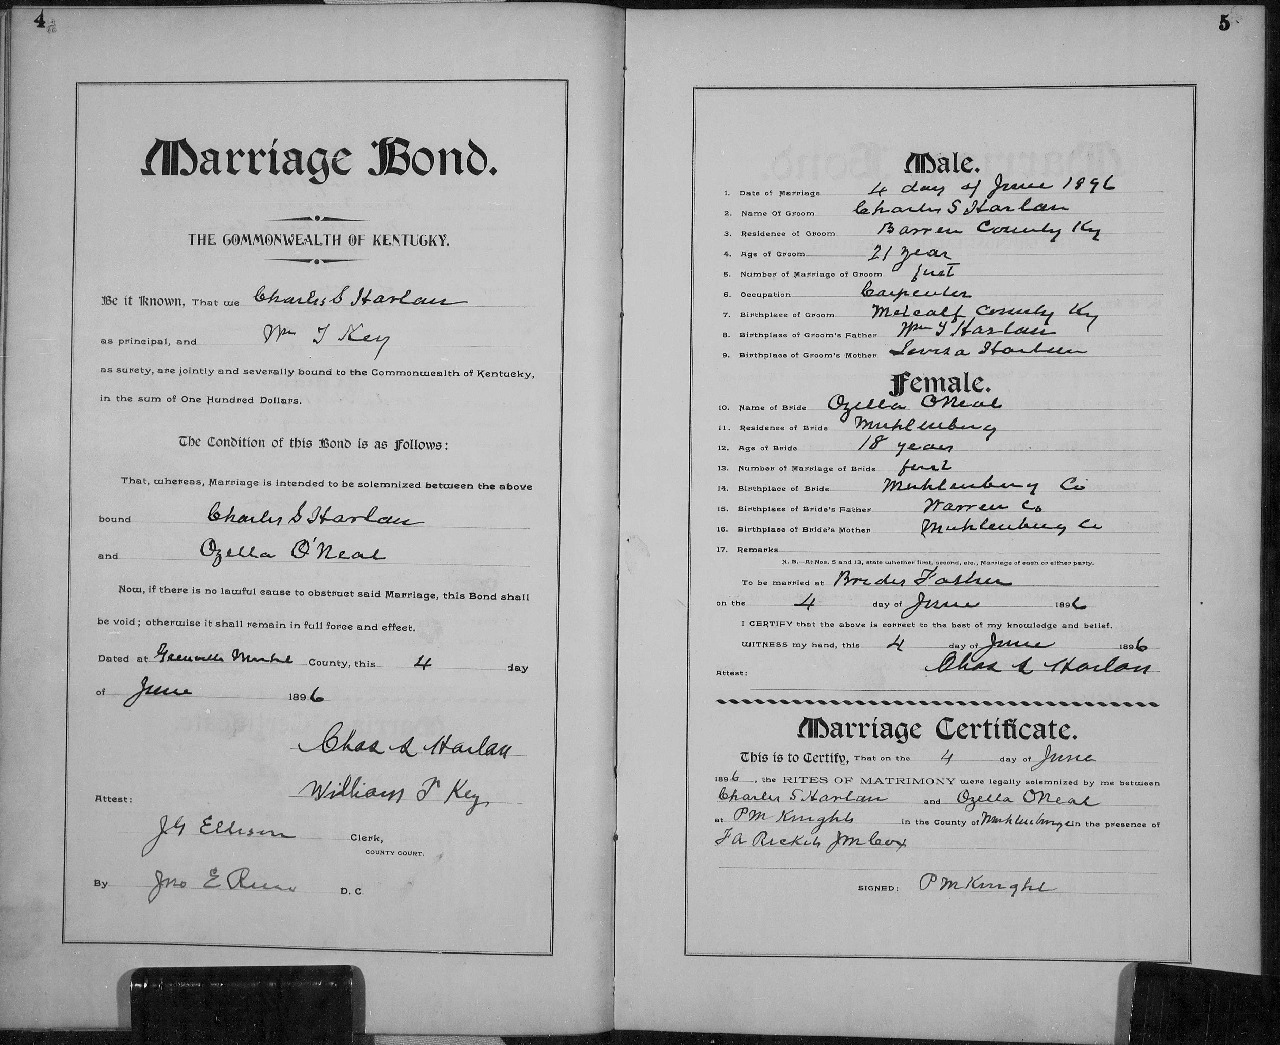 4
Marriage Bond.
THE COMMONWEALTH OF KENTUCKY.
Be it Known, That we Charles S Harlan
as principal, and Wm T Key
as surety, are jointly and severally bound to the Commonwealth of Kentucky,
in the sum of One Hundred Dollars.
The Condition of this Bond is as Follows:
That, whereas, Marriage is intended to be solemnized between the above
bound Charles S Harlan
and Ozella O'Neal
Now, if there is no lawful cause to obstruct said Marriage, this Bond shall
be void; otherwise it shall remain in full force and effect.
Dated at Greenville County, this 4 day
of June 1896
Chas S Harlan
William T Key
Attest:
J G Ellison Clerk,
COUNTY COURT.
By Jno E D. C
5
Male.
1. Date of Marriage 4 day of June 1896
2. Name Of Groom Charles S Harlan
3. Residence of Groom Barren County Ky
4. Age of Groom 21 year
5. Number of Marriage of Groom first
6. Occupation Carpenter
7. Birthplace of Groom Metcalf County Ky
8. Birthplace of Groom's Father Wm T Harlan
9. Birthplace of Groom's Mother Harlan
Female.
10. Name of Bride Ozella O'Neal
11. Residence of Bride Muhlenburg
12. Age of Bride 18 years
13. Number of Marriage of Bride first
14. Birthplace of Bride Muhlenburg Co
15. Birthplace of Bride's Father Warren Co
16. Birthplace of Bride's Mother Muhlenburg Co
17. Remarks
N. B.—At Nos. 5 and 13, state whether first, second, etc., Marriage of each or either party.
To be married at Brides Father
on the 4 day of June 1896
I CERTIFY that the above is correct to the best of my knowledge and belief.
WITNESS my hand, this 4 day of June 1896
Chas S Harlan
Attest:
Marriage Certificate.
This is to Certify, That on the 4 day of June
1896, the RITES OF MATRIMONY were legally solemnized by me between
Charles S Harlan and Ozella O'Neal
at P M Knights in the County of Muhlenburg in the presence of
J M Cox
SIGNED: P M Knight